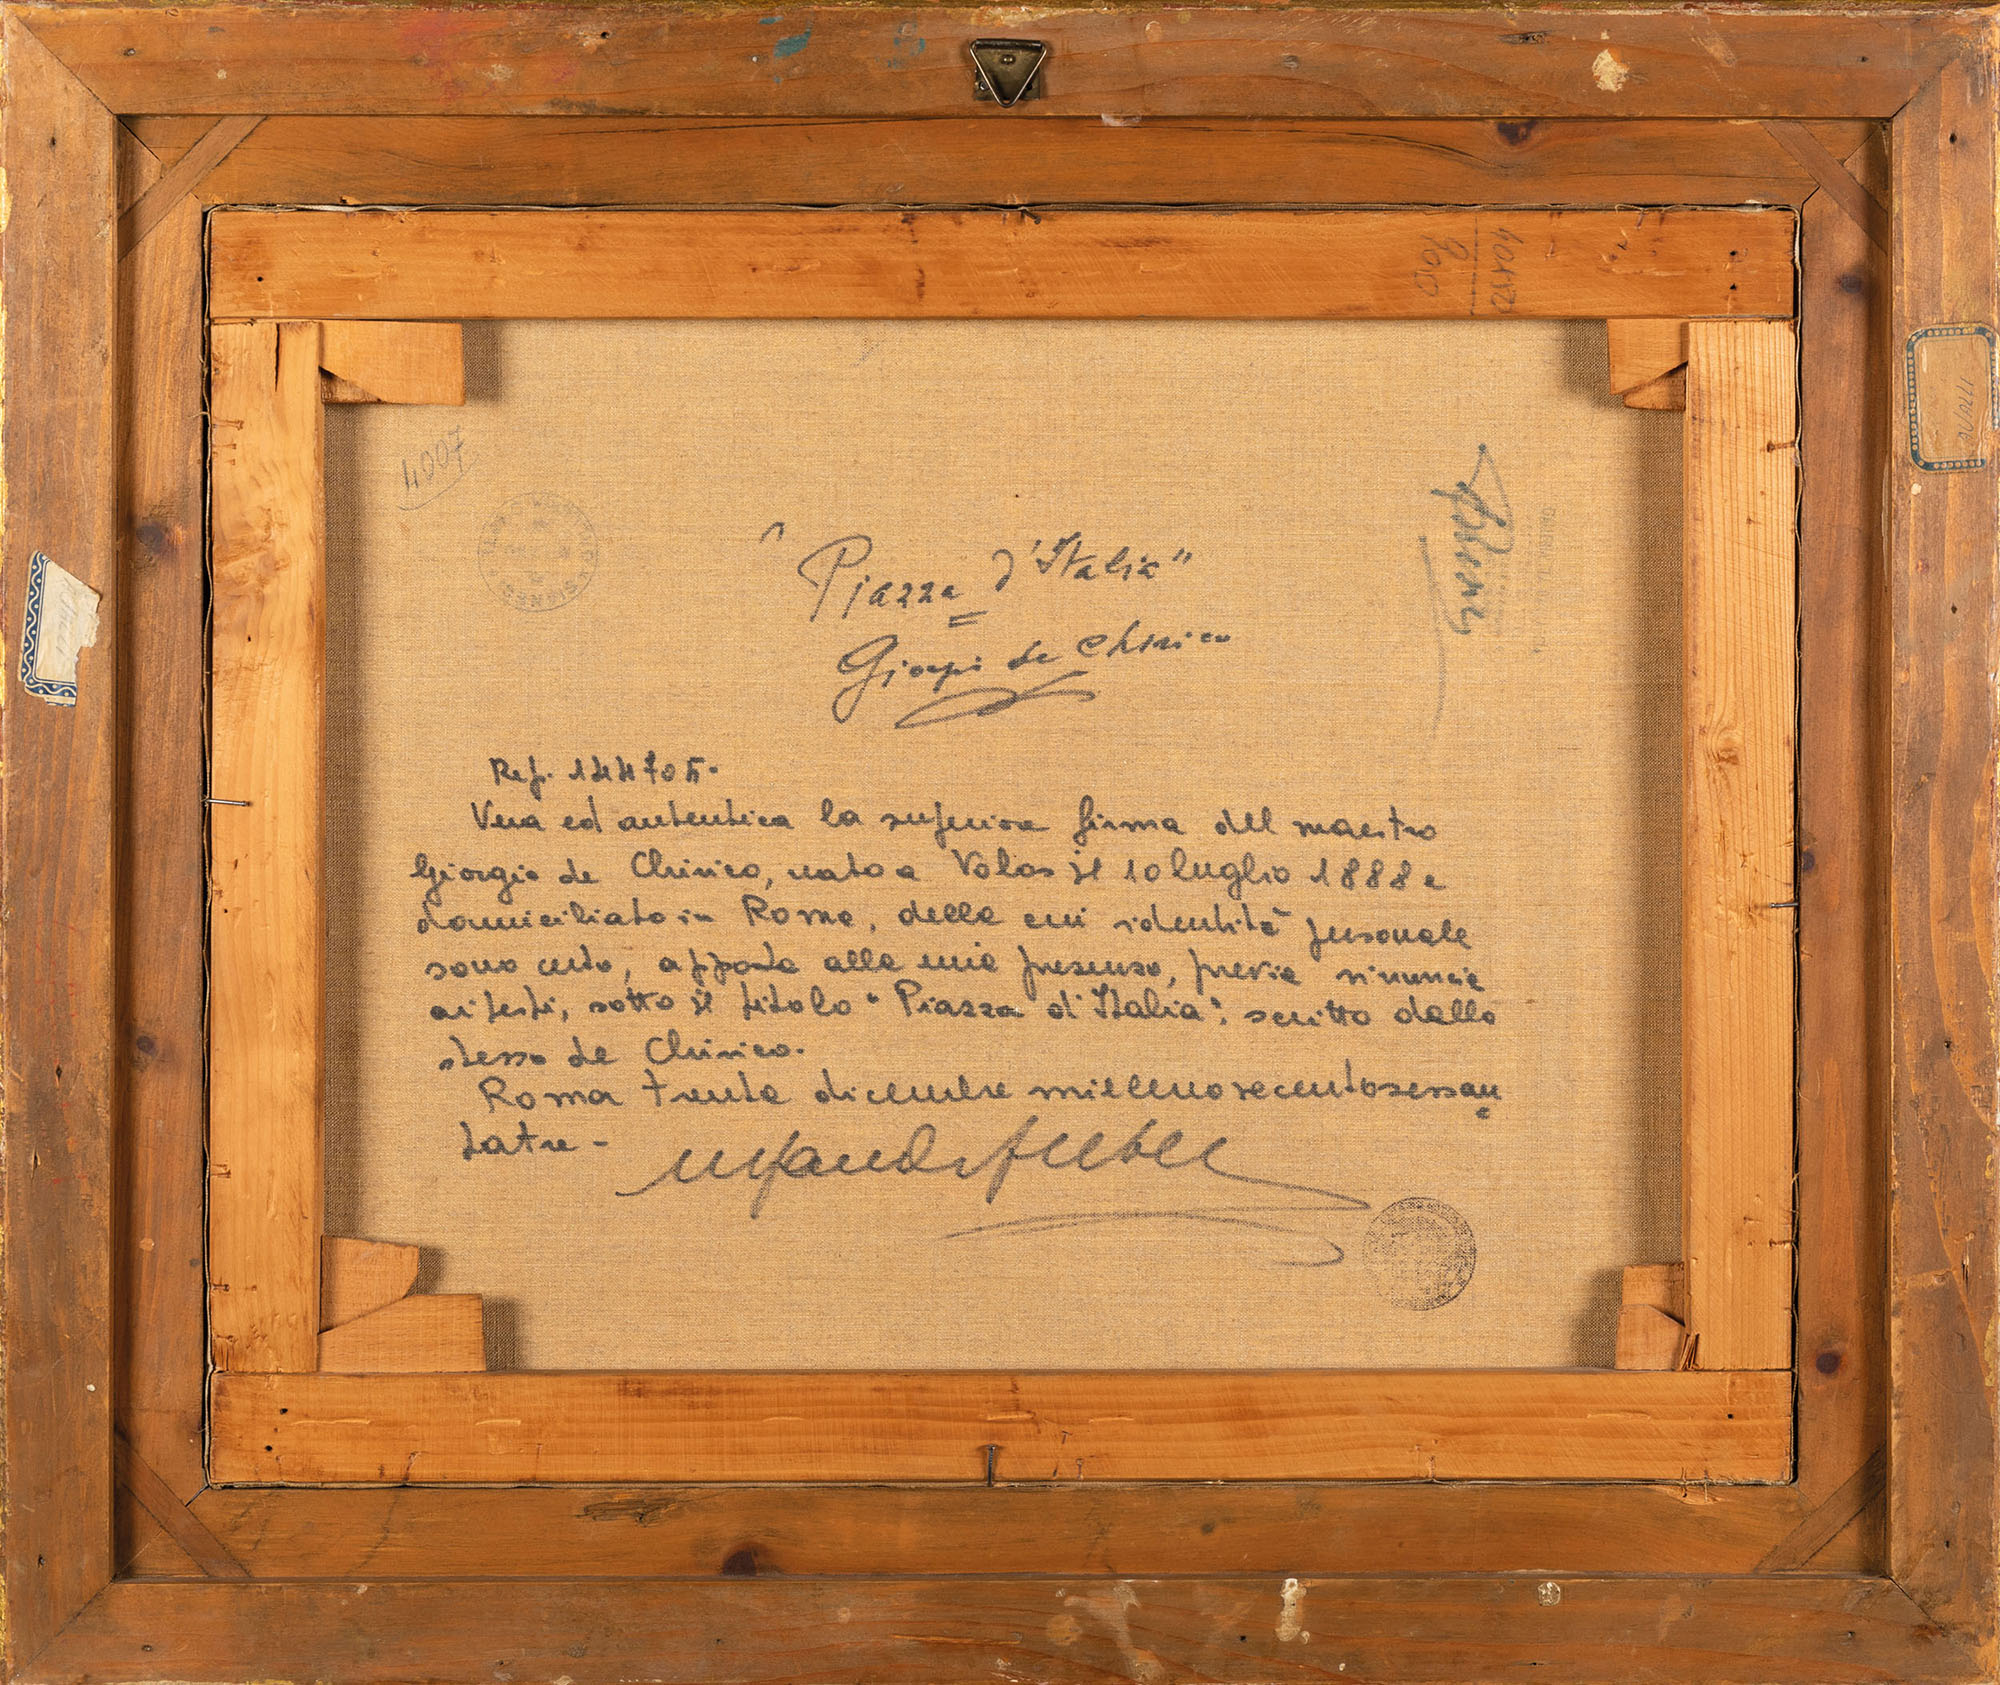 40x50
900
4007
"Piazza d'Italia"
Giorgio de Chirico
Rep. 144705.
Vera ed autentica la superiore firma del maestro
Giorgio de Chirico, nato a Volos il 10 luglio 1888 e
domiciliato in Roma, della cui identità personale
sono certo, apposta alla mia presenza, previa rinuncia
ai testi, sotto il titolo "Piazza d'Italia", scritto dallo
stesso de Chirico.
Roma trenta dicembre millenovecentosessan
tatre -